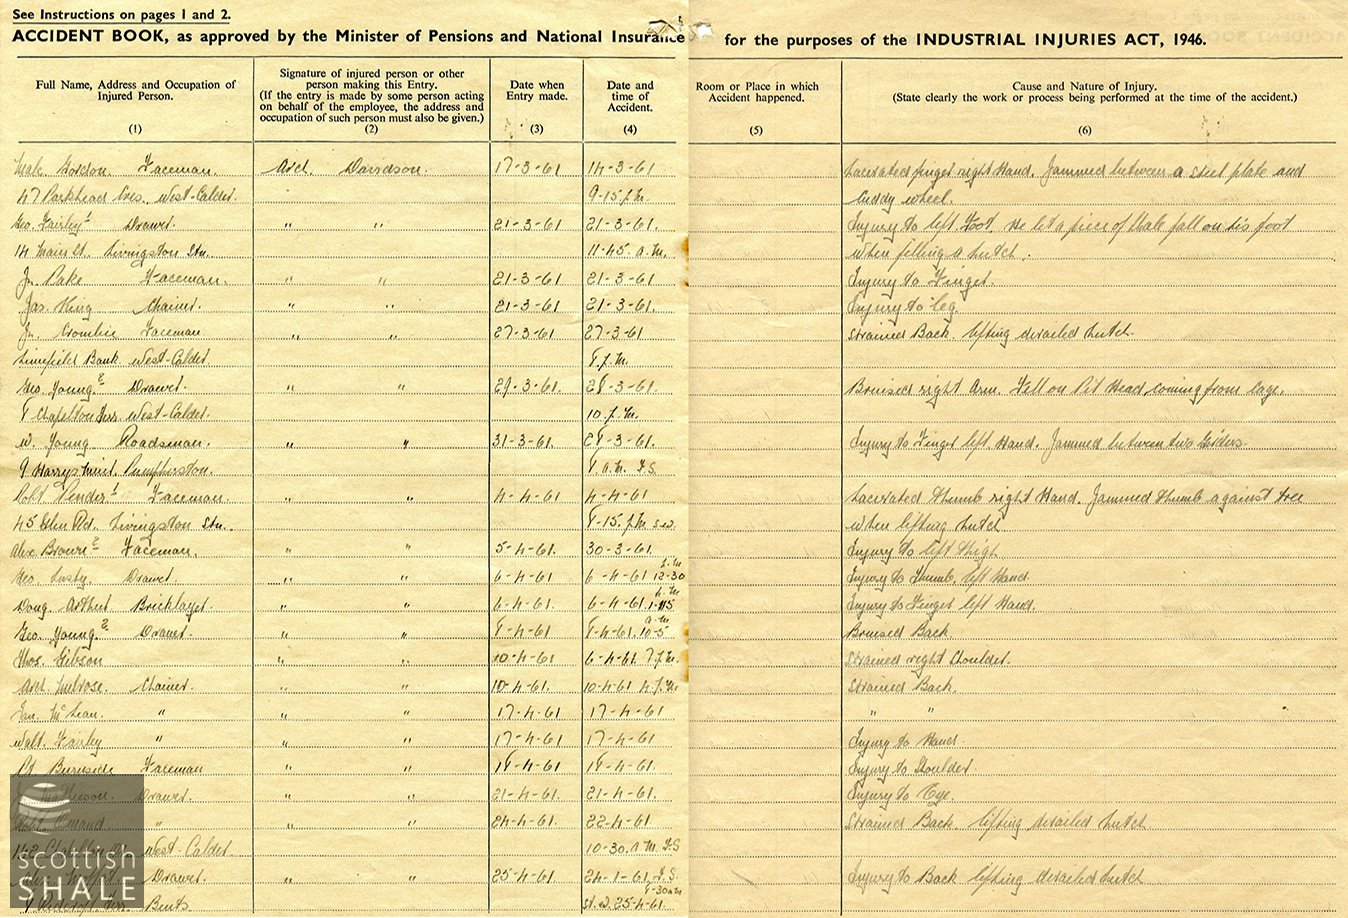 See Instructions on pages 1 and 2.
ACCIDENT BOOK, as approved by the Minister of Pensions and National Insurance for the purposes of the INDUSTRIAL INJURIES ACT, 1946.
Full Name, Address and Occupation of Injured Person. (1)
Signature of injured person or other person making this Entry. (If the entry is made by some person acting on behalf of the employee, the address and occupation of such person must also be given.) (2)
Date when Entry made. (3)
Date and time of Accident. (4)
Room or Place in which Accident happened. (5)
Cause and Nature of Injury. (State clearly the work or process being performed at the time of the accident.) (6)
Malc. Gordon Faceman. Arch. Davidson. 17-3-61 14-3-61 Lacerated finger right Hand. Jammed between a steel plate and
47 Parkhead Cres. West-Calder. 9-15 p.m. Cuddy wheel.
Geo. Fairley 1 Drawer. " " 21-3-61 21-3-61. Injury to left Foot. He let a piece of shale fall on his foot
14 Main St. Livingston Stn. 11-45. a.m. when filling a hutch.
Jn. Pake Faceman. " " 21-3-61 21-3-61 Injury to Finger.
Jas. King Chainer. " " 21-3-61 21-3-61. Injury to leg.
Jn. Crombie Faceman " " 27-3-61 27-3-61 Strained Back. lifting derailed hutch.
Limefield Bank West-Calder 8 p.m.
Geo. Young. 2 Drawer. " " 29-3-61. 28-3-61. Bruised right Arm. Fell on Pit Head, coming from Cage.
8 Chapelton Terr. West-Calder. 10. p.m.
W. Young Roadsman. " " 31-3-61. 28-3-61. Injury to Finger left Hand. Jammed between two Girders
9 Harrysmuir Pumpherston. 8 a.m. F.S.
Robt Pender 1 Faceman. " " 4-4-61 4-4-61 Lacerated Thumb right Hand. Jammed thumb against tree
45 Glen Rd. Livingston Stn. 8-15. p.m. when lifting hutch
Alex Brown 2 Faceman. " " 5-4-61. 30-3-61. Injury to left thigh
Geo. Lusby. Drawer. " " 6-4-61 6-4-61 12-30 p.m. Injury to Thumb, left Hand.
Doug. Arthur Bricklayer. " " 6-4-61. 6-4-61. 1-45 p.m. Injury to Finger left Hand.
Geo. Young. 2 Drawer. " " 8-4-61 8-4-61. 10-5 a.m. Bruised Back.
Thos. Gibson " " 10-4-61 6-4-61. 7. p.m. Strained right Shoulder.
Arch. Melrose. Chainer. " " 10-4-61. 10-4-61 4 p.m. Strained Back.
Ian. McLean. " " " 17-4-61 17-4-61 " "
Walt. Fairley " " " 17-4-61 17-4-61 Injury to Hand.
Burnside Faceman " " 18-4-61 18-4-61. Injury to Shoulder
Drawer. " " 21-4-61. 21-4-61. Injury to Eye.
" " " 24-4-61 22-4-61. Strained Back. lifting derailed hutch
142 West-Calder 10-30. a.m. F.S
Drawer. " " 25-4-61. 24-1-61, F.S. Injury to Back lifting derailed hutch
8-30 a.m
Terr. Bents 25-4-61.
scottish
SHALE